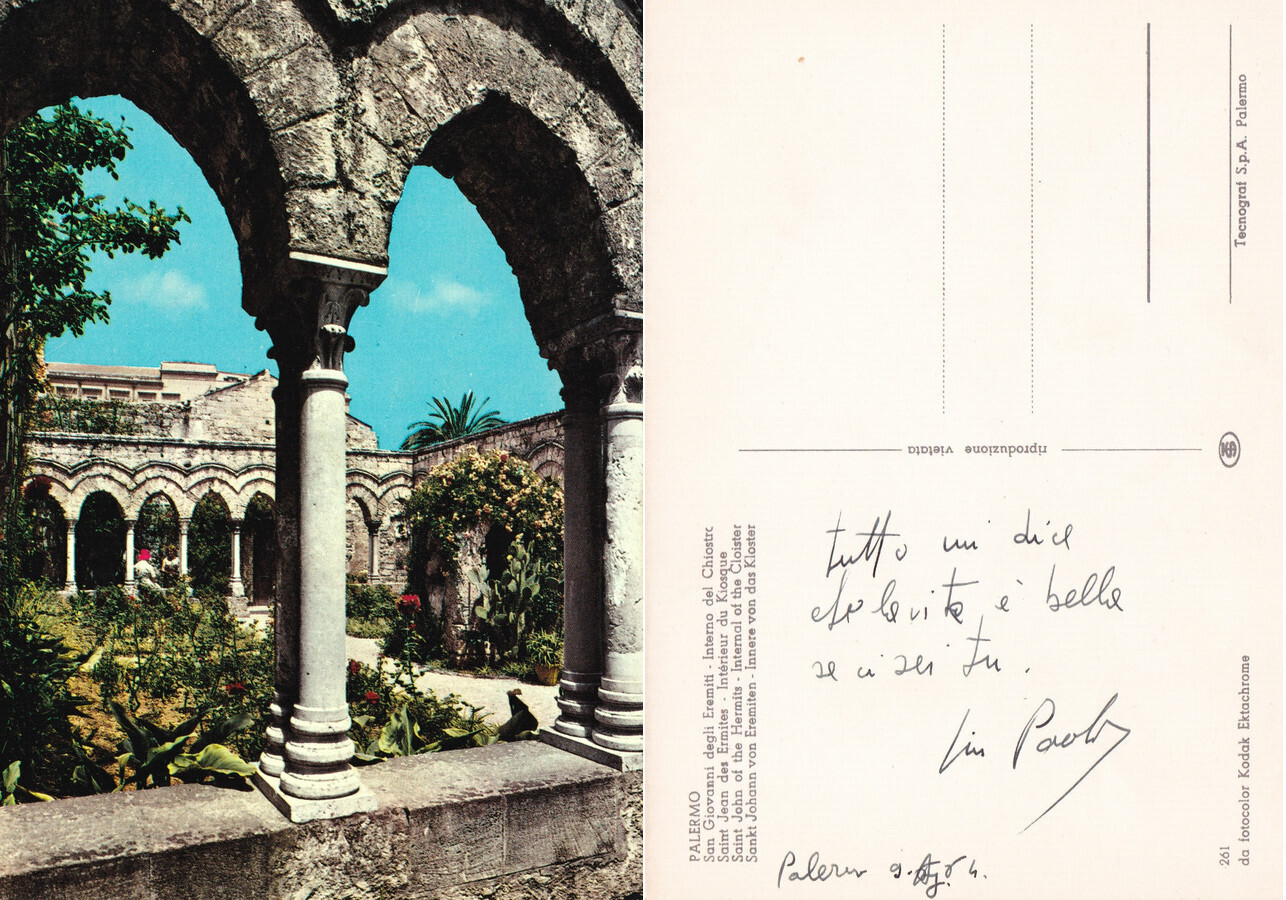 Tecnograf S.p.A. Palermo
riproduzione vietata
PALERMO
San Giovanni degli Eremiti - Interno del Chiostro
Saint Jean des Ermites - Intérieur du Kiosque
Saint John of the Hermits - Internal of the Cloister
Sankt Johann von Eremiten - Innere von das Kloster
tutto mi dice
che la vita è bella
se ci sei tu.
Paolo
Palermo 9.
261
da fotocolor Kodak Ektachrome